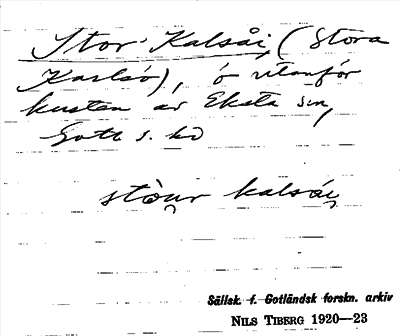 Stor-Kalsåi, (Stora
Karlsö), ö utanför
kusten av Eksta sn,
Gotl s. hd
stòur kalsái
Sällsk. f. Gotländsk forskn. arkiv
NILS TIBERG 1920—23